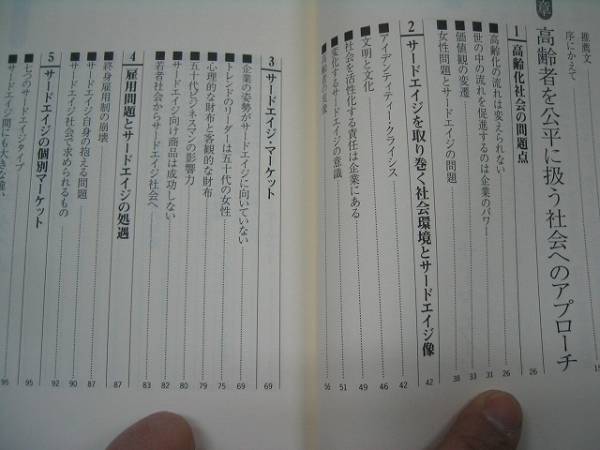 推薦文
序にかえて 15
章 高齢者を公平に扱う社会へのアプローチ
1 高齢化社会の問題点 26
■高齢化の流れは変えられない 26
■世の中の流れを促進するのは企業のパワー 31
■価値観の変遷 33
■女性問題とサードエイジの問題 38
2 サードエイジを取り巻く社会環境とサードエイジ像 42
■アイデンティティー・クライシス 42
■文明と文化 46
■社会を活性化する責任は企業にある 49
■変化するサードエイジの意識 51
56
3 サードエイジ・マーケット 69
■企業の姿勢がサードエイジに向いていない 69
■トレンドのリーダーは五十代の女性 75
■心理的な財布と客観的な財布 79
■五十代ビジネスマンの影響力 80
■サードエイジ向け商品は成功しない 82
■若者社会からサードエイジ社会へ 83
4 雇用問題とサードエイジの処遇 87
■終身雇用制の崩壊 87
■サードエイジ自身の抱える問題 87
■サードエイジ社会で求められるもの 90
5 サードエイジの個別マーケット 92
■七つのサードエイジタイプ 95
■サードエイジ間にも大きな違い 96